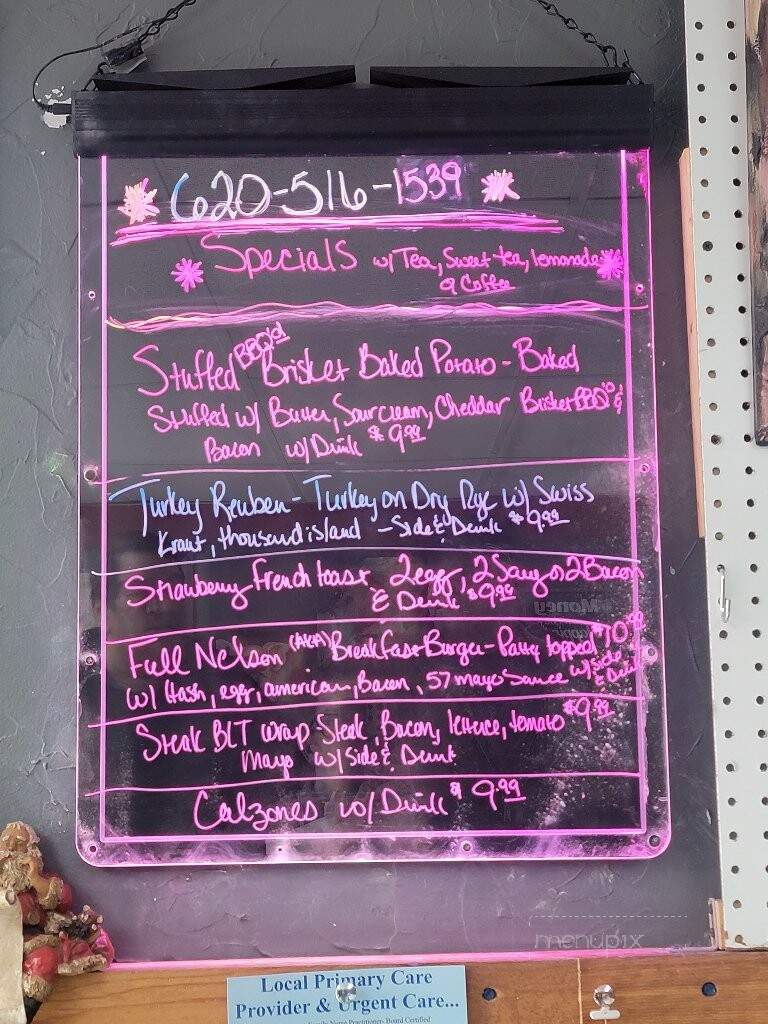 620-516-1539
Specials w/ Tea, Sweet tea, lemonade
& Coffee
Stuffed BBQ'd Brisket Baked Potato - Baked
Stuffed w/ Butter, Sour cream, Cheddar Brisket BBQ'd &
Bacon w/ Drink $9.99
Turkey Reuben - Turkey on Dry Rye w/ Swiss
Kraut, thousand island - Side & Drink $9.99
Strawberry French toast 2 egg, 2 Saug or 2 Bacon
& Drink $9.99
Full Nelson (AKA) Breakfast Burger - Patty topped $10.99
w/ Hash, egg, american, Bacon, 57 mayo Sauce w/ Side
& Drink
Steak BLT wrap Steak, Bacon, lettuce, tomato $9.99
Mayo w/ Side & Drink
Calzones w/ Drink $9.99
menupix
Local Primary Care
Provider & Urgent Care...